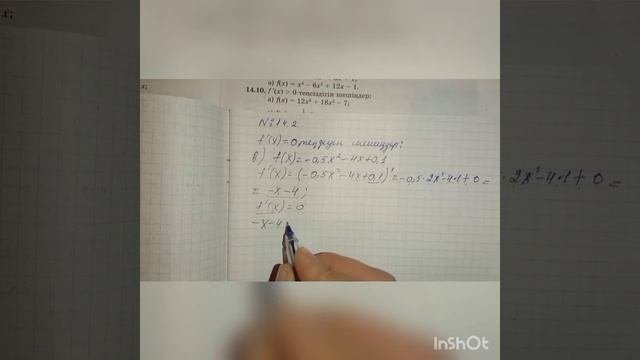 x;
а) f(x) = x⁴ − 6x² + 12x − 1.
14.10. f'(x) > 0 теңсіздігін шешіңдер:
а) f(x) = 12x³ + 18x² − 7;
x;
№14.2
f'(x)=0 теңдеуін шешіңдер:
в) f(x)=-0,5x²-4x+0,1
f'(x)=(-0,5x²-4x+0,1)'=-0,5·2x¹-4·1+0= · 2x¹-4·1+0=
= -x-4;
f'(x)=0
-x-4
InShOt